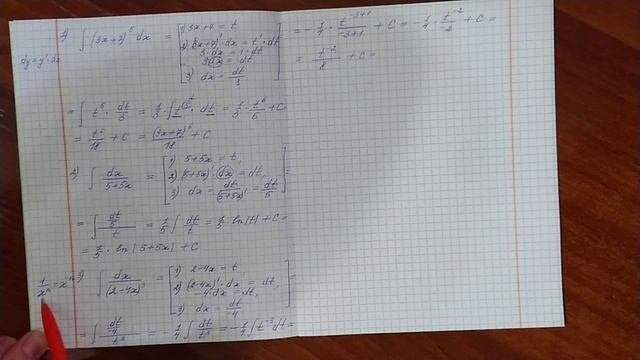 1) ∫ (3x+7)⁵ dx = [1) 3x+7 = t
dy = y'·dx
2) (3x+7)'·dx = t'·dt
3·dx = 1·dt
3dx = dt
3) dx = dt/3]
= ∫ t⁵ · dt/3 = 1/3 · ∫ t⁵ · dt = 1/3 · t⁶/6 + C =
= t⁶/18 + C = (3x+7)⁶/18 + C
2) ∫ dx/(5+5x) = [1) 5+5x = t,
2) (5+5x)'·dx = dt,
3) dx = dt/(5+5x)' = dt/5] =
= ∫ (dt/5)/t = 1/5 ∫ dt/t = 1/5 · ln|t| + C =
= 1/5 · ln|5+5x| + C
1/xⁿ = x⁻ⁿ
3) ∫ dx/(2-4x)³ = [1) 2-4x = t,
2) (2-4x)'·dx = dt,
-4·dx = dt,
3) dx = dt/-4] =
= ∫ (dt/-4)/t³ = -1/4 ∫ dt/t³ = -1/4 ∫ t⁻³ dt =
= -1/4 · t⁻³⁺¹/-3+1 + C = -1/4 · t⁻²/-2 + C =
= t⁻²/8 + C =